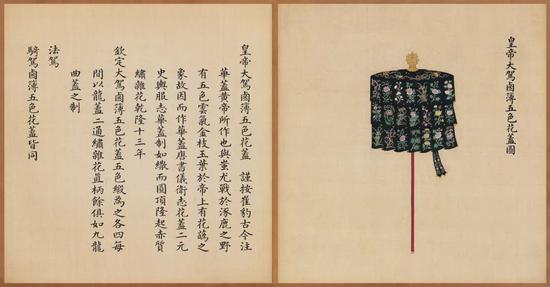 皇帝大駕鹵簿五色花蓋圖
皇帝大駕鹵簿五色花蓋 謹按崔豹古今注
華蓋黃帝所作也與蚩尤戰於涿鹿之野
有五色雲氣金枝玉葉於帝上有花葩之
象故因而作華蓋唐書儀衛志花蓋二元
史輿服志華蓋制如繖而圓頂隆起赤質
繡雜花乾隆十三年
欽定大駕鹵簿五色花蓋五色緞為之各四每
間以龍蓋二通繡雜花直柄餘俱如九龍
曲蓋之制
法駕
騎駕鹵簿五色花蓋皆同